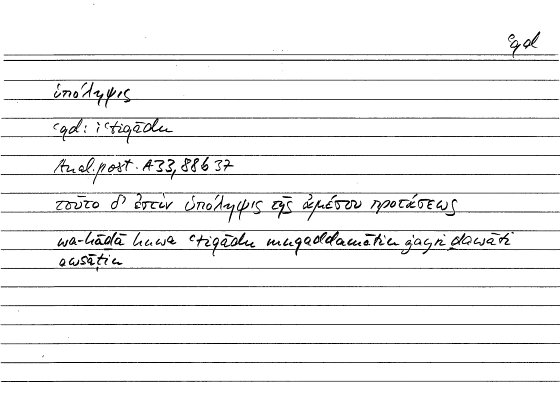 ʿqd
ὑπόληψις
ʿqd: iʿtiqādu
Anal. post. A33, 88b37
τοῦτο δ' ἐστὶν ὑπόληψις τῆς ἀμέσου προτάσεως
wa-hāḏā huwa ʿtiqādu muqaddamātin ġayri ḏawāti
awsāṭin